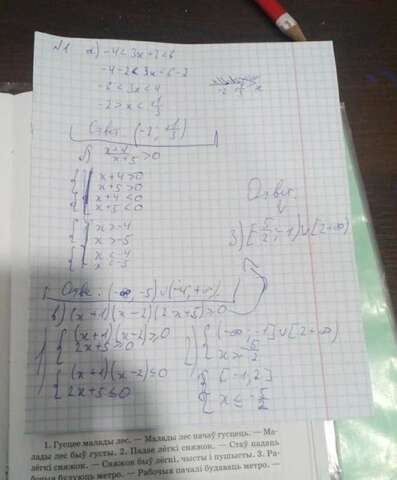 №1 а) -4 < 3x+2 < 6
-4-2 < 3x < 6-2
-6 < 3x < 4
-2 > x < 4/3
Ответ: (-2; 4/3)
б) x+4/x+5 > 0
x+4>0
x+5>0
x+4≤0
x+5≤0
x>-4
x>-5
x≤-4
x≤-5
Ответ: (-∞, -5)∪(-4,+∞)
в) (x+1)(x-2)(2x+5)≥0
1) (x+1)(x-2)≥0
2x+5≥0
(x+1)(x-2)≤0
2x+5≤0
2) (-∞, -1]∪[2+∞)
[-1,2]
x≤-5/2
Ответ
3) [-5/2,-1)∪[2+∞)
1. Гусцее малады лес. — Малады лес пачаў гусцець. — Ма-
лады лес быў густы. 2. Падае лёгкі сняжок. — Стаў падаць
лёгкі сняжок. — Сняжок быў лёгкі, чысты і пушысты. 3. Ра-
бочыя будуюць метро. — Рабочыя пачалі будаваць метро. —